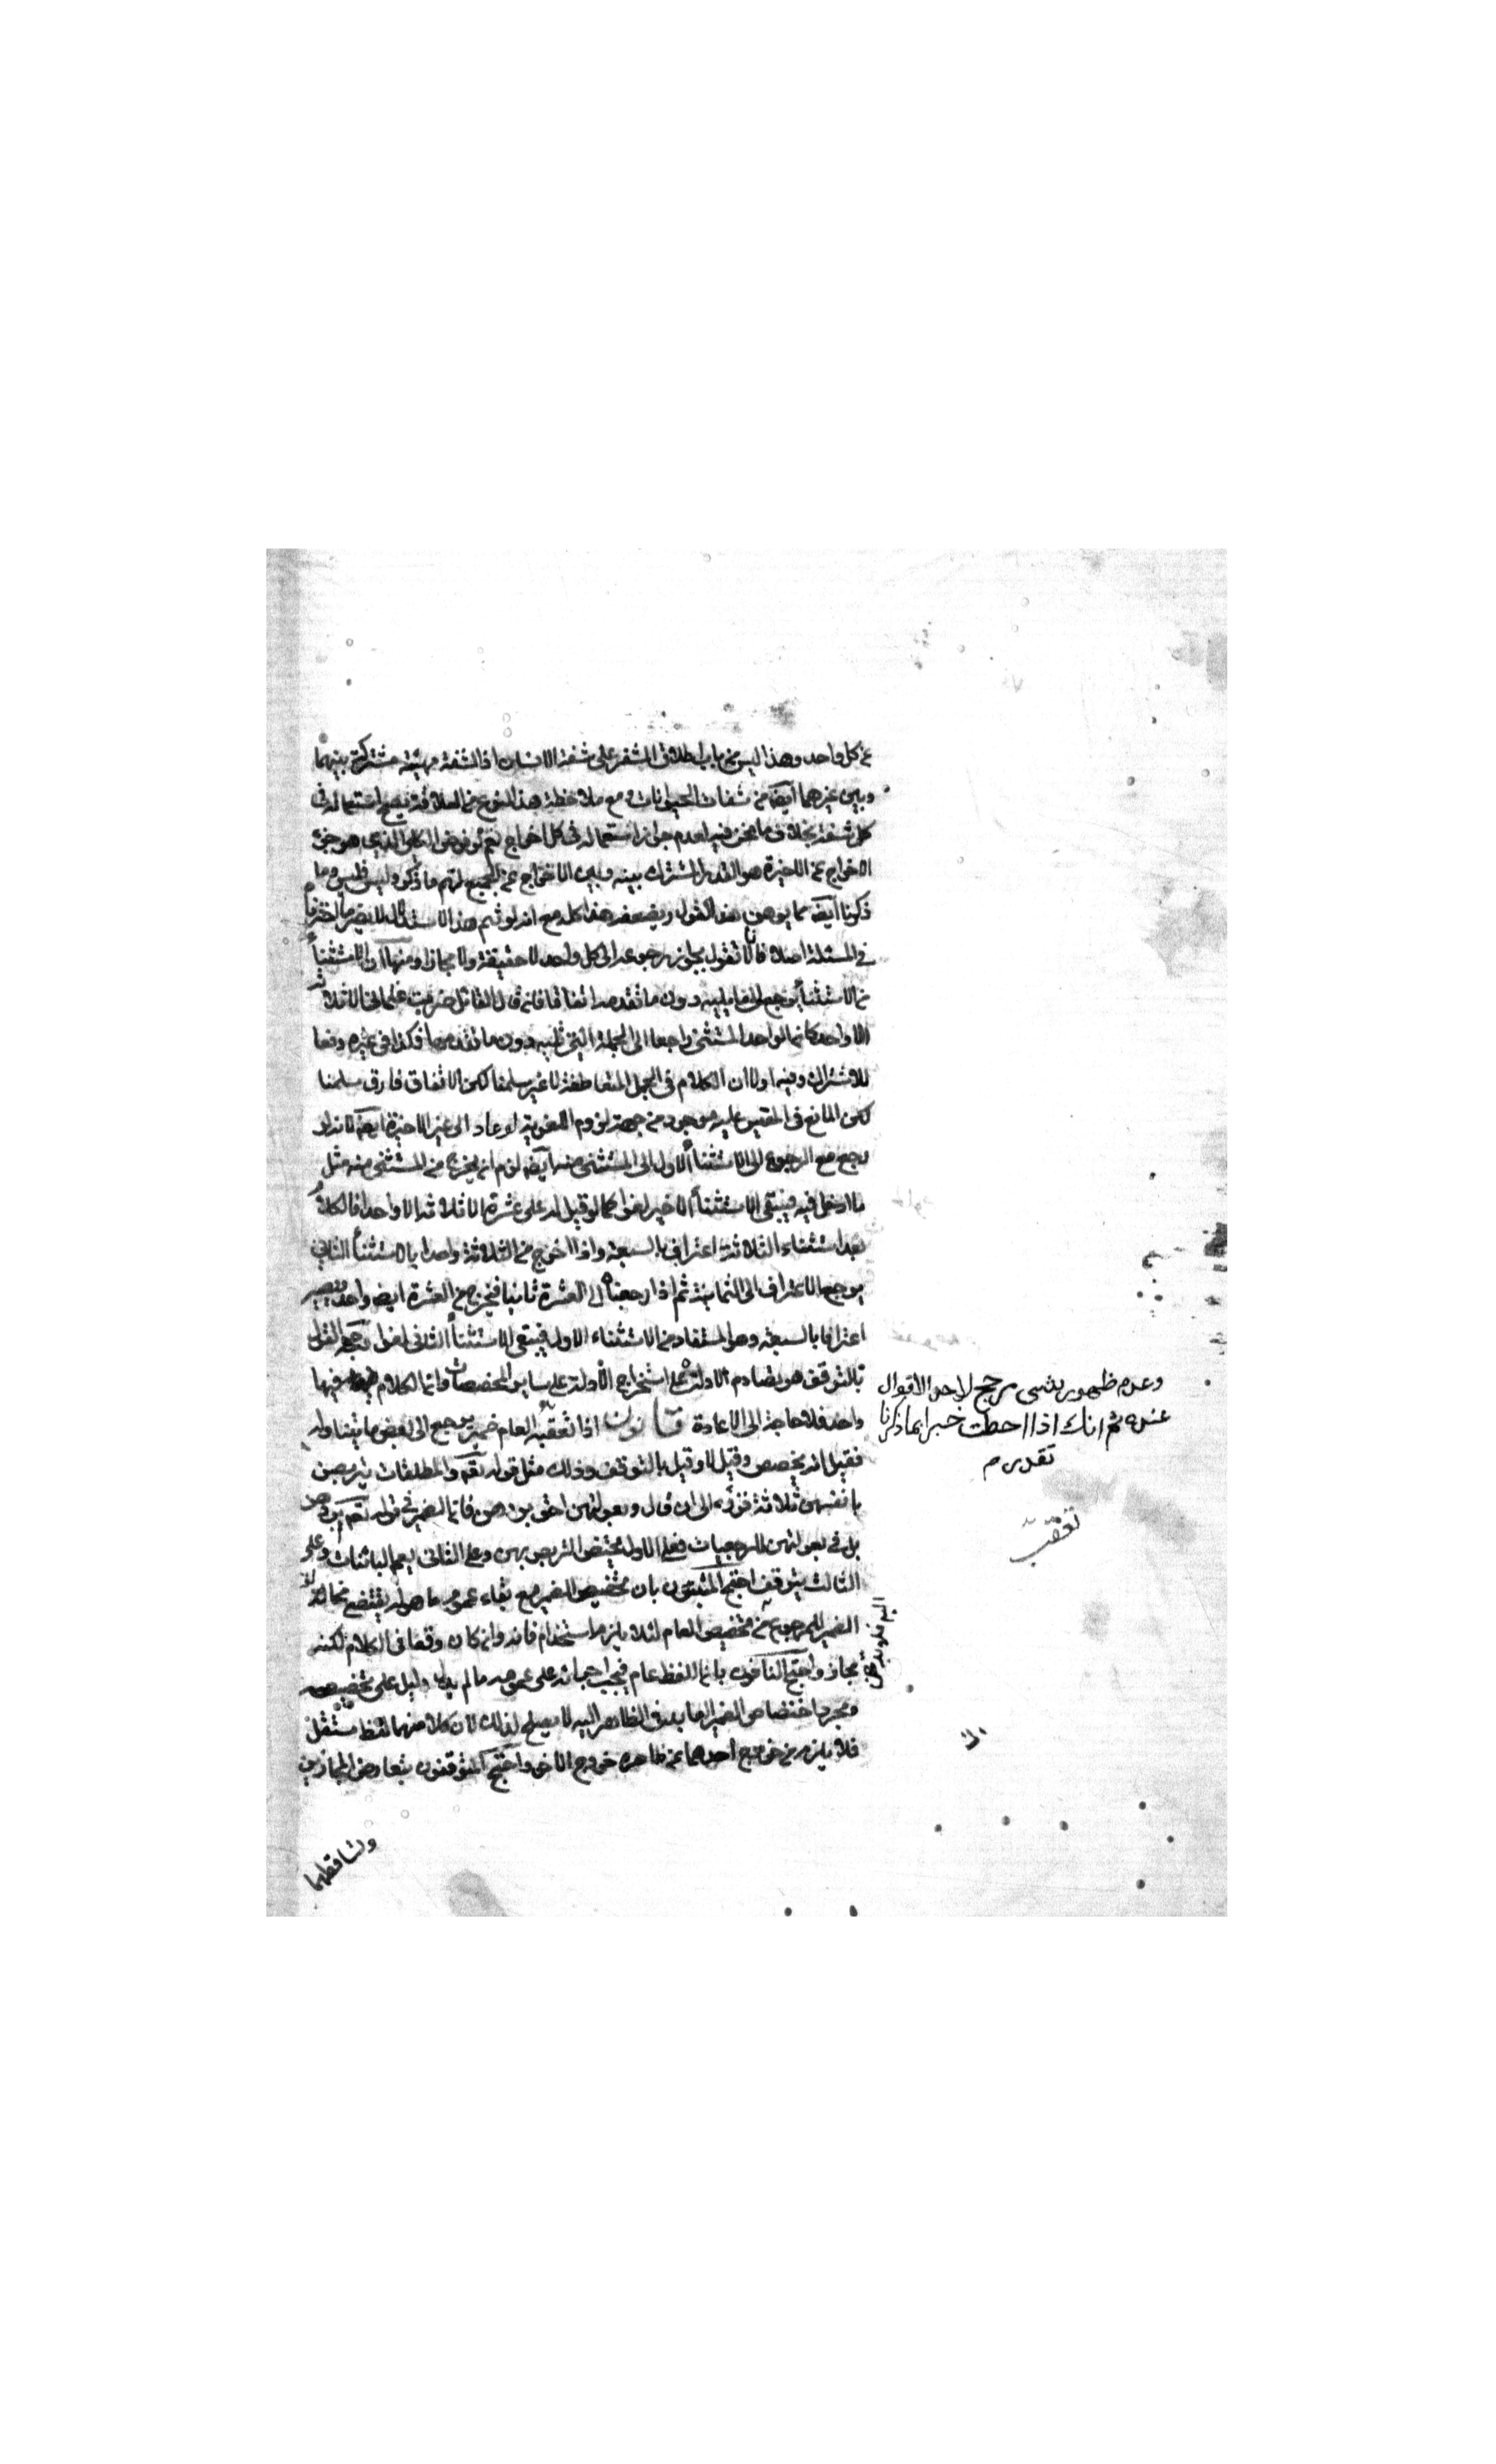 عن كل واحد وهذا ليس من باب اطلاق المشفر على شفة الانسان اذ الشفة مهيّة مشتركة بينهما
وبين غيرهما ايضا من شفات الحيوانات مع ملاحظة هذا النوع من العلاقة يصح استعماله في
كل شفة بخلاف ما نحن فيه لعدم جواز استعماله في كل اخراج نعم لو فرض الكلى الذي هو جزء
الاخراج عن الاخيرة هو القدر المشترك بينه وبين الاخراج عن الجميع لتم ما ذكر وليس فليس وما
ذكرنا ايضا مما يوهن هذا القول ويضعفه هذا كله مع انه لو تم هذا الاستدلال لا يضر ما اخترنا
في المسئلة اصلا فانا لا نقول بجواز رجوعه الى كل واحد لا حقيقة ولا مجازا ومنها ان الاستثناء
من الاستثناء يرجع الى ما يليه دون ما تقدمه اتفاقا فاذا قال القائل ضربت غلماني الا ثلاثة
الا واحدا كان الواحد المستثنى راجعا الى الجملة التي تليه دون ما تقدمها فكذا في غيره دفعا
للاشتراك وفيه اولا ان الكلام في الجمل المتعاطفة لا غير سلمنا لكن الاتفاق فارق سلمنا
لكن المانع في المقيس عليه موجود من جهة لزوم اللغوية لو عاد الى غير الاخيرة ايضا لانه لو
رجع مع الرجوع الى الاستثناء الاول الى المستثنى منه ايضا لزم ان يخرج من المستثنى منه مثل
ما ادخل فيه فيبقى الاستثناء الاخير لغوا كما لو قيل له على عشرة الا ثلاثة الا واحدا فالكلام
بعد استثناء الثلاثة اعتراف بالسبعة واذا اخرج من الثلاثة واحدا بالاستثناء الثاني
يرجع الاعتراف الى الثمانية ثم اذا رجعناه الى العشرة ثانيا فيخرج من العشرة ايضا واحد ويصير
اعترافا بالسبعة وهو المستفاد من الاستثناء الاول فيبقى الاستثناء الثاني لغوا حجة القول
بالتوقف هو تصادم الادلة على استخراج الادلة على ساير المخصصات وانما الكلام فيها
واحد فلا حاجة الى الاعادة قانون اذا تعقب العام ضمير يرجع الى بعض ما يتناوله
فقيل انه يخصص وقيل لا وقيل بالتوقف وذلك مثل قوله تعه والمطلقات يتربصن
بانفسهن ثلاثة قروء الى ان قال وبعولتهن احق بردهن فان الضمير في قوله تعه بردهن
بل في بعولتهن للرجعيات فعلى الاول يختص التربص بهن وعلى الثاني يعم البائنات وعلى
الثالث يتوقف احتج المثبتون بان تخصيص الضمير مع بقاء عموم ما هو له يقتضي مخالفة
الضمير للمرجوع اليه فلا بد من تخصيص العام لئلا يلزم استخدام فانه وان كان واقعا في الكلام لكنه
مجاز واحتج النافون بان اللفظ عام فيجب اجرائه على عمومه ما لم يدل دليل على تخصيصه
ومجرد اختصاص الضمير العايد في الظاهر اليه لا يصلح لذلك لان كلا منهما لفظ مستقل
فلا يلزم من خروج احدهما عن ظاهره خروج الاخر واحتج المتوقفون بتعارض المجازين
وتساقطهما
وعدم ظهور شي مرجح لاحد الاقوال
عنده ثم انك اذا احطت خبرا بما ذكرنا
تقدر م